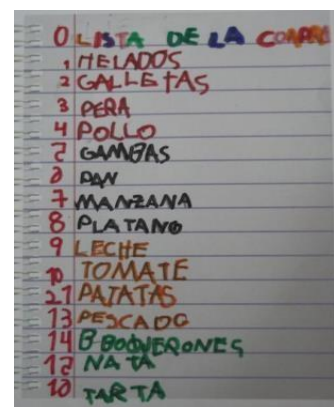 0 LISTA DE LA COMPRA
1 HELADOS
2 GALLETAS
3 PERA
4 POLLO
5 GAMBAS
6 PAN
7 MANZANA
8 PLATANO
9 LECHE
10 TOMATE
21 PATATAS
13 PESCADO
14 B BOQUERONES
12 NATA
10 TARTA